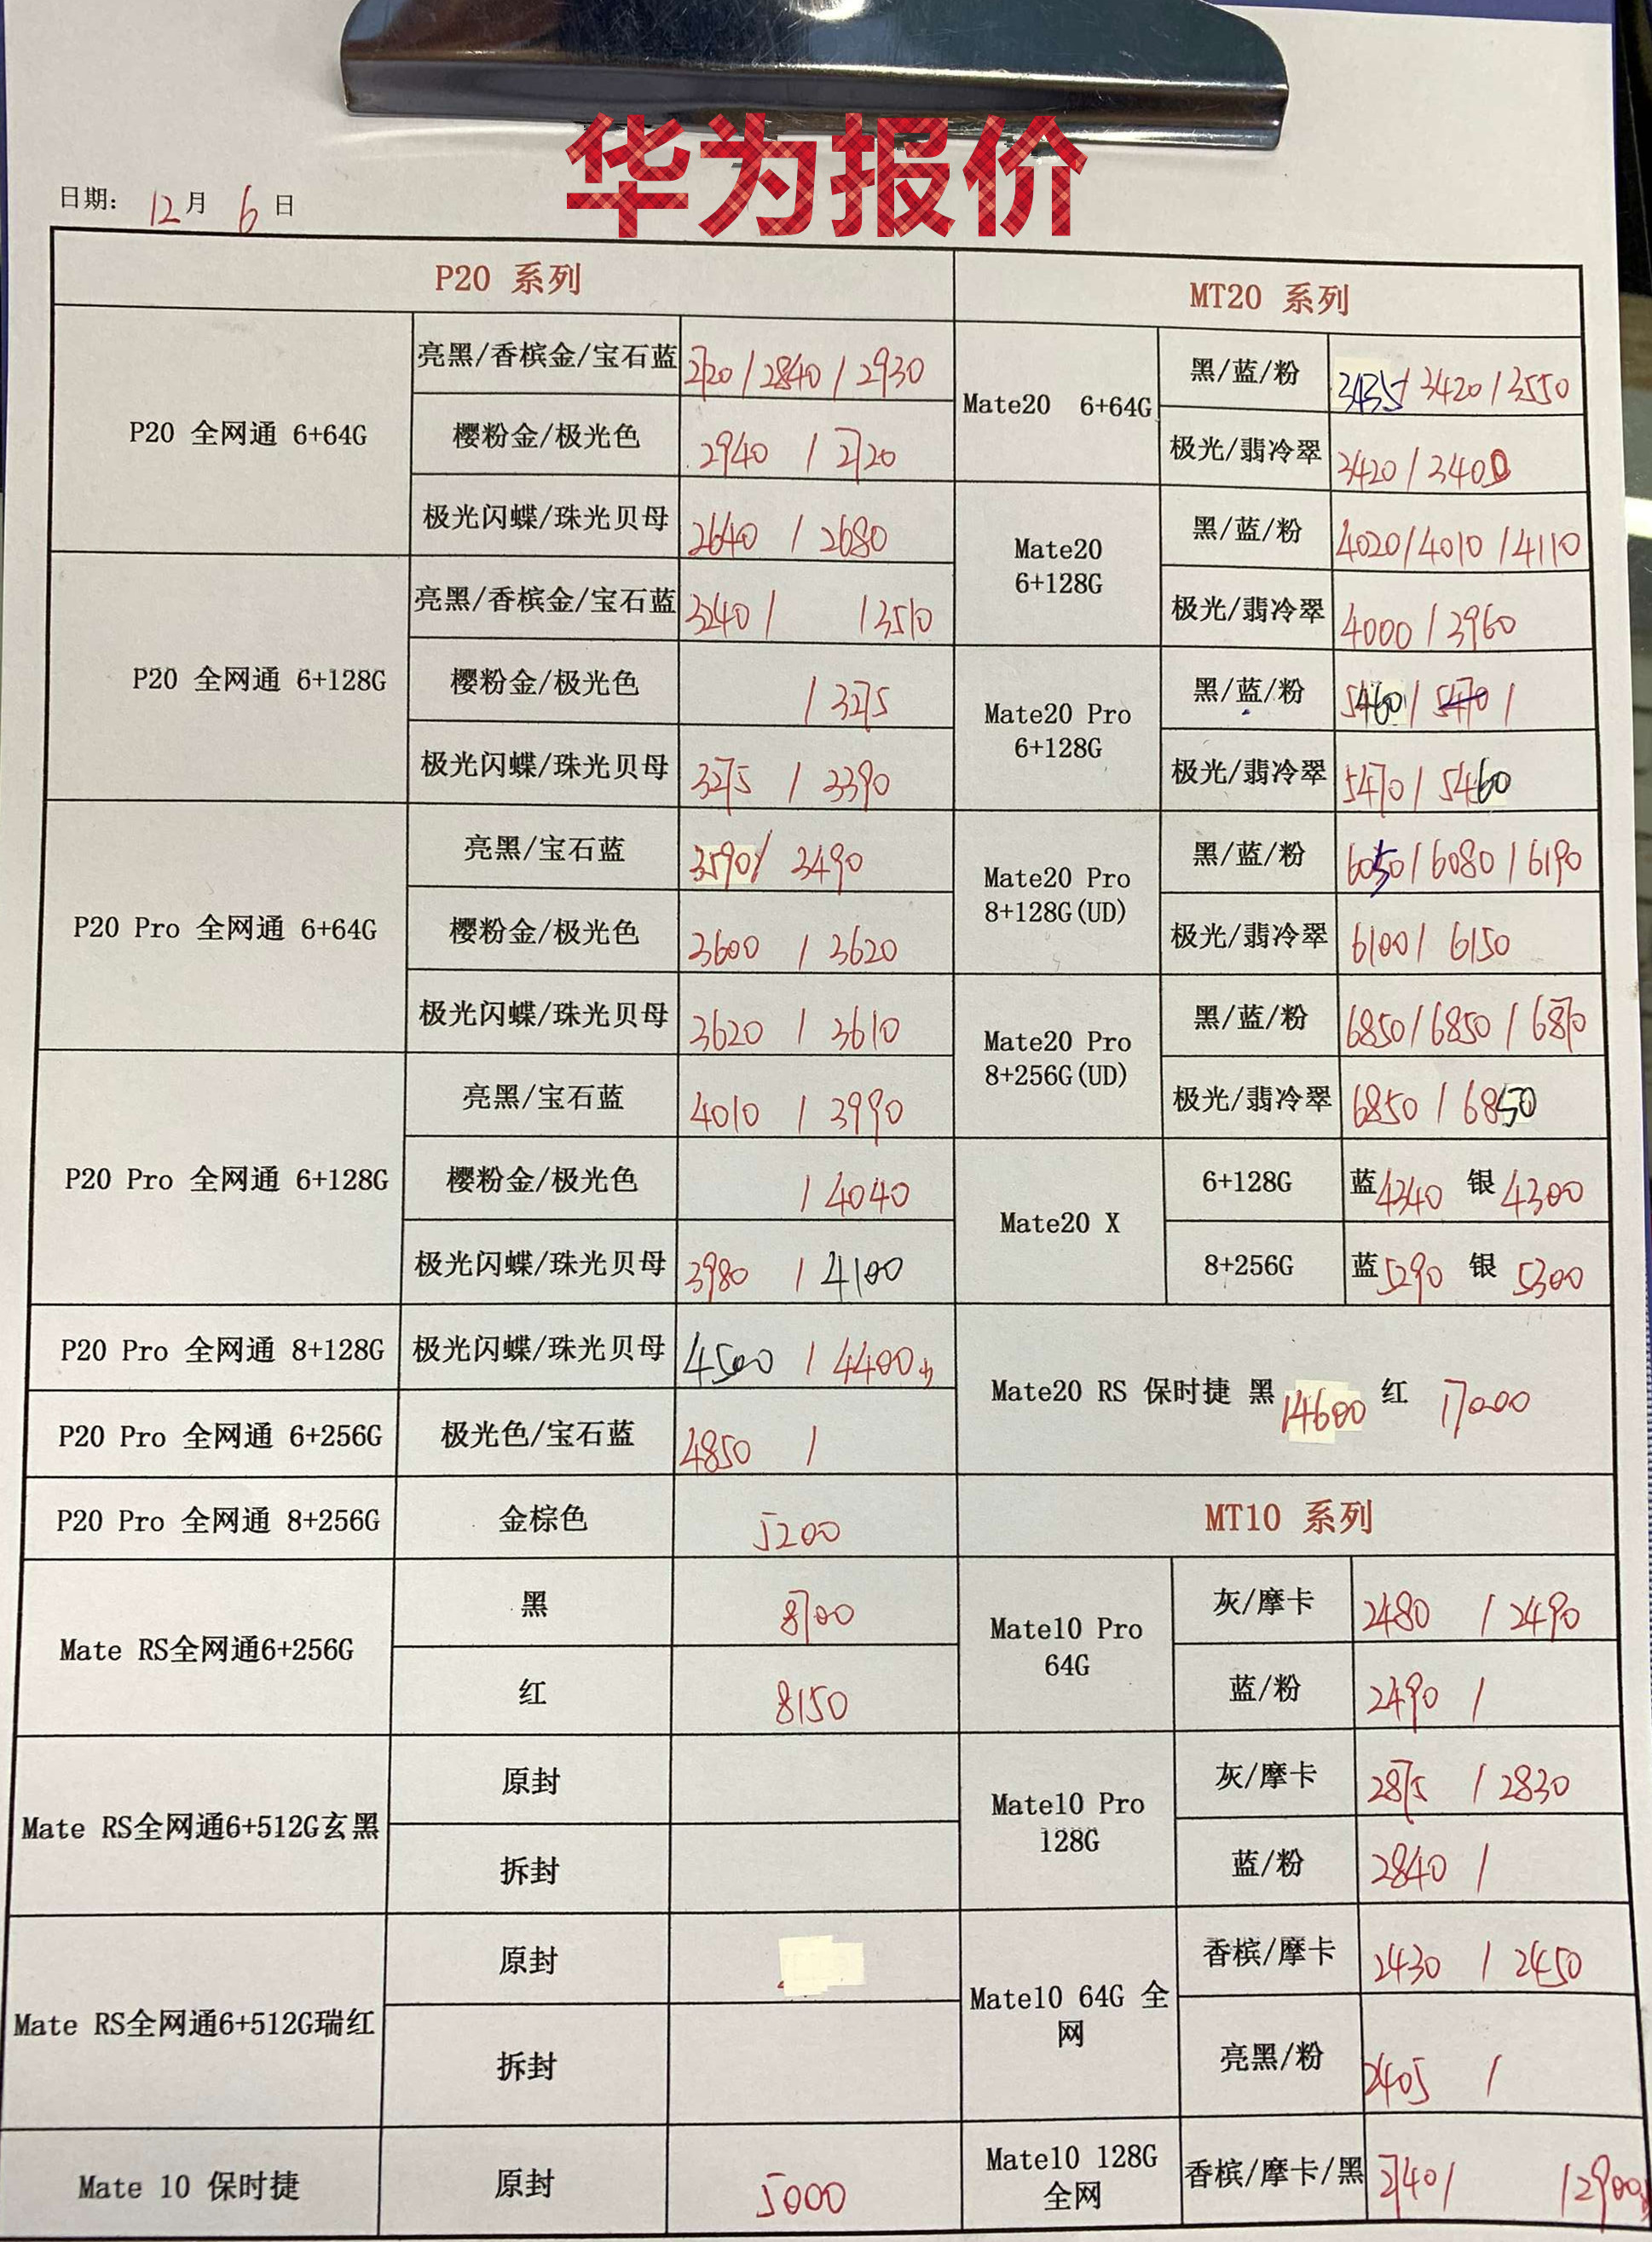 华为报价
日期: 12月 6日
P20 系列
P20 全网通 6+64G
亮黑/香槟金/宝石蓝 2720/2840/2930
樱粉金/极光色 2940 / 2720
极光闪蝶/珠光贝母 2640 / 2680
P20 全网通 6+128G
亮黑/香槟金/宝石蓝 3240/ /3510
樱粉金/极光色 / 3275
极光闪蝶/珠光贝母 3275 / 3390
P20 Pro 全网通 6+64G
亮黑/宝石蓝 3590/ 3490
樱粉金/极光色 3600 / 3620
极光闪蝶/珠光贝母 3620 / 3610
P20 Pro 全网通 6+128G
亮黑/宝石蓝 4010 / 3990
樱粉金/极光色 / 4040
极光闪蝶/珠光贝母 3980 / 4100
P20 Pro 全网通 8+128G 极光闪蝶/珠光贝母 4500 / 4400
P20 Pro 全网通 6+256G 极光色/宝石蓝 4850 /
P20 Pro 全网通 8+256G 金棕色 5200
Mate RS全网通6+256G
黑 8700
红 8150
Mate RS全网通6+512G玄黑
原封
拆封
Mate RS全网通6+512G瑞红
原封
拆封
Mate 10 保时捷 原封 5000
MT20 系列
Mate20 6+64G
黑/蓝/粉 3435/3420/3550
极光/翡冷翠 3420/3400
Mate20
6+128G
黑/蓝/粉 4020/4010/4110
极光/翡冷翠 4000/3960
Mate20 Pro
6+128G
黑/蓝/粉 5460/5470/
极光/翡冷翠 5470/5460
Mate20 Pro
8+128G(UD)
黑/蓝/粉 6050/6080/6190
极光/翡冷翠 6100/6150
Mate20 Pro
8+256G(UD)
黑/蓝/粉 6850/6850/6870
极光/翡冷翠 6850/6850
Mate20 X
6+128G 蓝4340 银4300
8+256G 蓝5290 银5300
Mate20 RS 保时捷 黑14600 红 17000
MT10 系列
Mate10 Pro
64G
灰/摩卡 2480 / 2490
蓝/粉 2490 /
Mate10 Pro
128G
灰/摩卡 2875 / 2830
蓝/粉 2840 /
Mate10 64G 全
网
香槟/摩卡 2430 / 2450
亮黑/粉 2405 /
Mate10 128G
全网
香槟/摩卡/黑 2740/ /2900